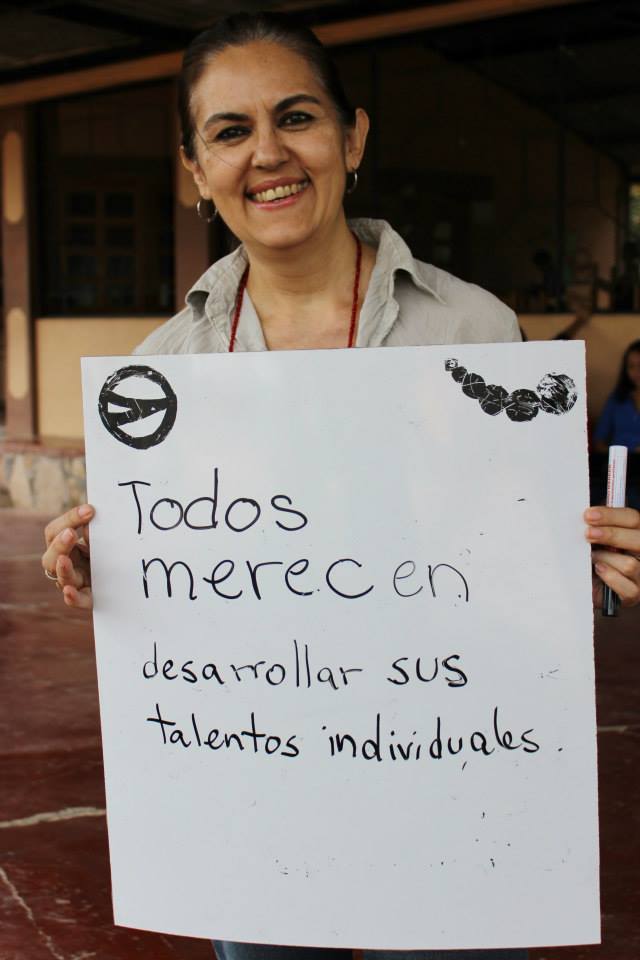 Todos
merecen
desarrollar sus
talentos individuales.